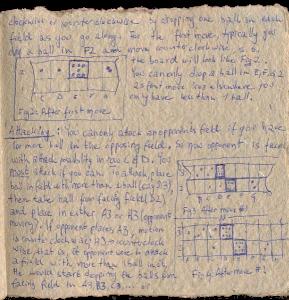 clockwise or counterclockwise by dropping one ball in each
field as you go along. For the first move, typically you
drop a ball in F2 and move counterclockwise is 6,
the board will look like Fig 2.
You can only drop a ball in
as first move
only have less than 1 ball.
Fig 2: After first move
Attacking: You can only attack an opponents field if you have
1 or more ball in the opposing field. So now opponent is faced
with attack possibility in row C & D. You
must attack if you can. to attack, place
ball in field with more than 1 ball (say D3),
then take ball from facing field (D2)
and place in either A3 or H3 (opponent
moving). If opponent places A3, motion
is counterclockwise, H3
wise. that is, if opponent were to attack
a field with more than 1 ball in it,
he would start dropping the balls from
facing field in A3, B3, C3, ... or
Fig 3: After move #1
Fig 4: After move #2